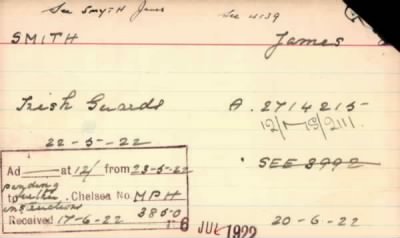 See SMYTH James See 4139
SMITH James
Irish Guards A. 2714215
12/MG/2111.
22-5-22
SEE 3992
Ad at 12/ from 23-5-22
pending
to further Chelsea No. MPH
instructions 3850
Received 17-6-22
6 JUL 1922
20-6-22